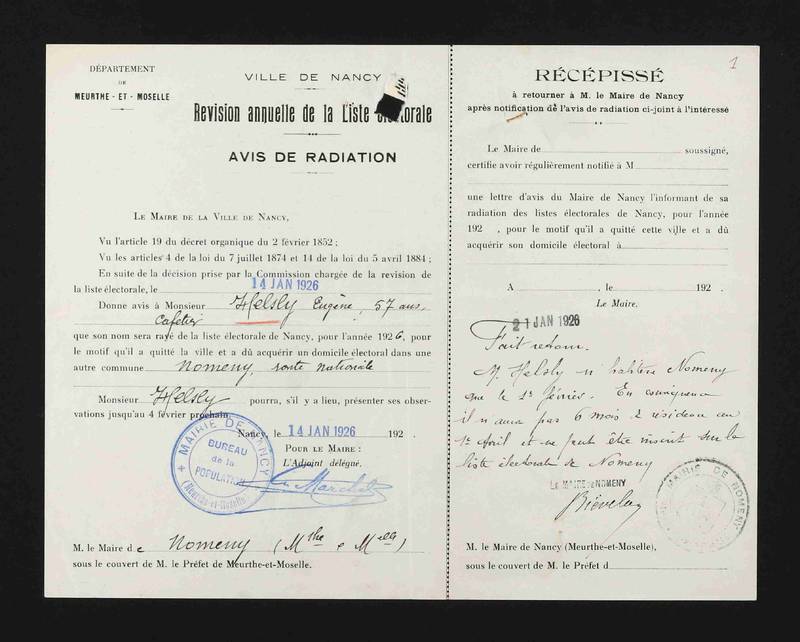 DÉPARTEMENT
DE
MEURTHE-ET-MOSELLE
VILLE DE NANCY
Revision annuelle de la Liste électorale
AVIS DE RADIATION
LE MAIRE DE LA VILLE DE NANCY,
Vu l'article 19 du décret organique du 2 février 1852 ;
Vu les articles 4 de la loi du 7 juillet 1874 et 14 de la loi du 5 avril 1884 ;
En suite de la décision prise par la Commission chargée de la revision de
la liste électorale, le 14 JAN 1926
Donne avis à Monsieur Helsly Eugène, 57 ans,
Cafetier
que son nom sera rayé de la liste électorale de Nancy, pour l'année 1926, pour
le motif qu'il a quitté la ville et a dû acquérir un domicile électoral dans une
autre commune Nomeny, route nationale
Monsieur Helsly pourra, s'il y a lieu, présenter ses obser-
vations jusqu'au 4 février prochain.
Nancy, le 14 JAN 1926 192 .
POUR LE MAIRE :
L'Adjoint délégué.
MAIRIE DE NANCY
BUREAU
de la
POPULATION
(Meurthe-et-Moselle)
M. le Maire de Nomeny (Mthe e Melle)
sous le couvert de M. le Préfet de Meurthe-et-Moselle.
1
RÉCÉPISSÉ
à retourner à M. le Maire de Nancy
après notification de l'avis de radiation ci-joint à l'intéressé
Le Maire de soussigné,
certifie avoir régulièrement notifié à M
une lettre d'avis du Maire de Nancy l'informant de sa
radiation des listes électorales de Nancy, pour l'année
192 , pour le motif qu'il a quitté cette ville et a dû
acquérir son domicile électoral à
A , le 192 .
Le Maire.
21 JAN 1926
Fait retour.
M. Helsly n'habitera Nomeny
que le 1er février. En conséquence
il n'aura pas 6 mois de résidence au
1er Avril et ne peut être inscrit sur la
liste électorale de Nomeny
LE MAIRE DE NOMENY
MAIRIE DE NOMENY
M. le Maire de Nancy (Meurthe-et-Moselle),
sous le couvert de M. le Préfet d